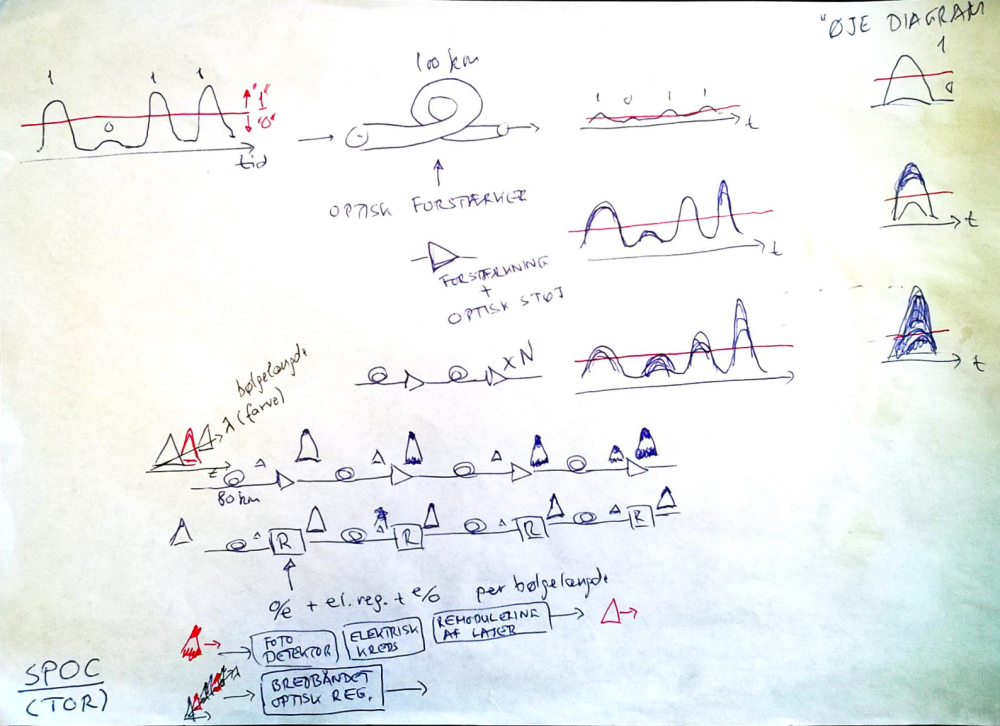 "ØJE DIAGRAM
1
0
1
0
1
1
"1"
"0"
tid
100 km
OPTISK FORSTÆRKER
1 0 1 1
t
t
t
FORSTÆRKNING
+
OPTISK STØJ
xN
t
t
bølgelængde
λ (farve)
t
80 km
R
R
R
R
o/e + el. reg. + e/o per bølgelængde
FOTO
DETEKTOR
ELEKTRISK
KREDS
REMODULERING
AF LASER
λ
BREDBÅNDET
OPTISK REG.
SPOC
(TOR)